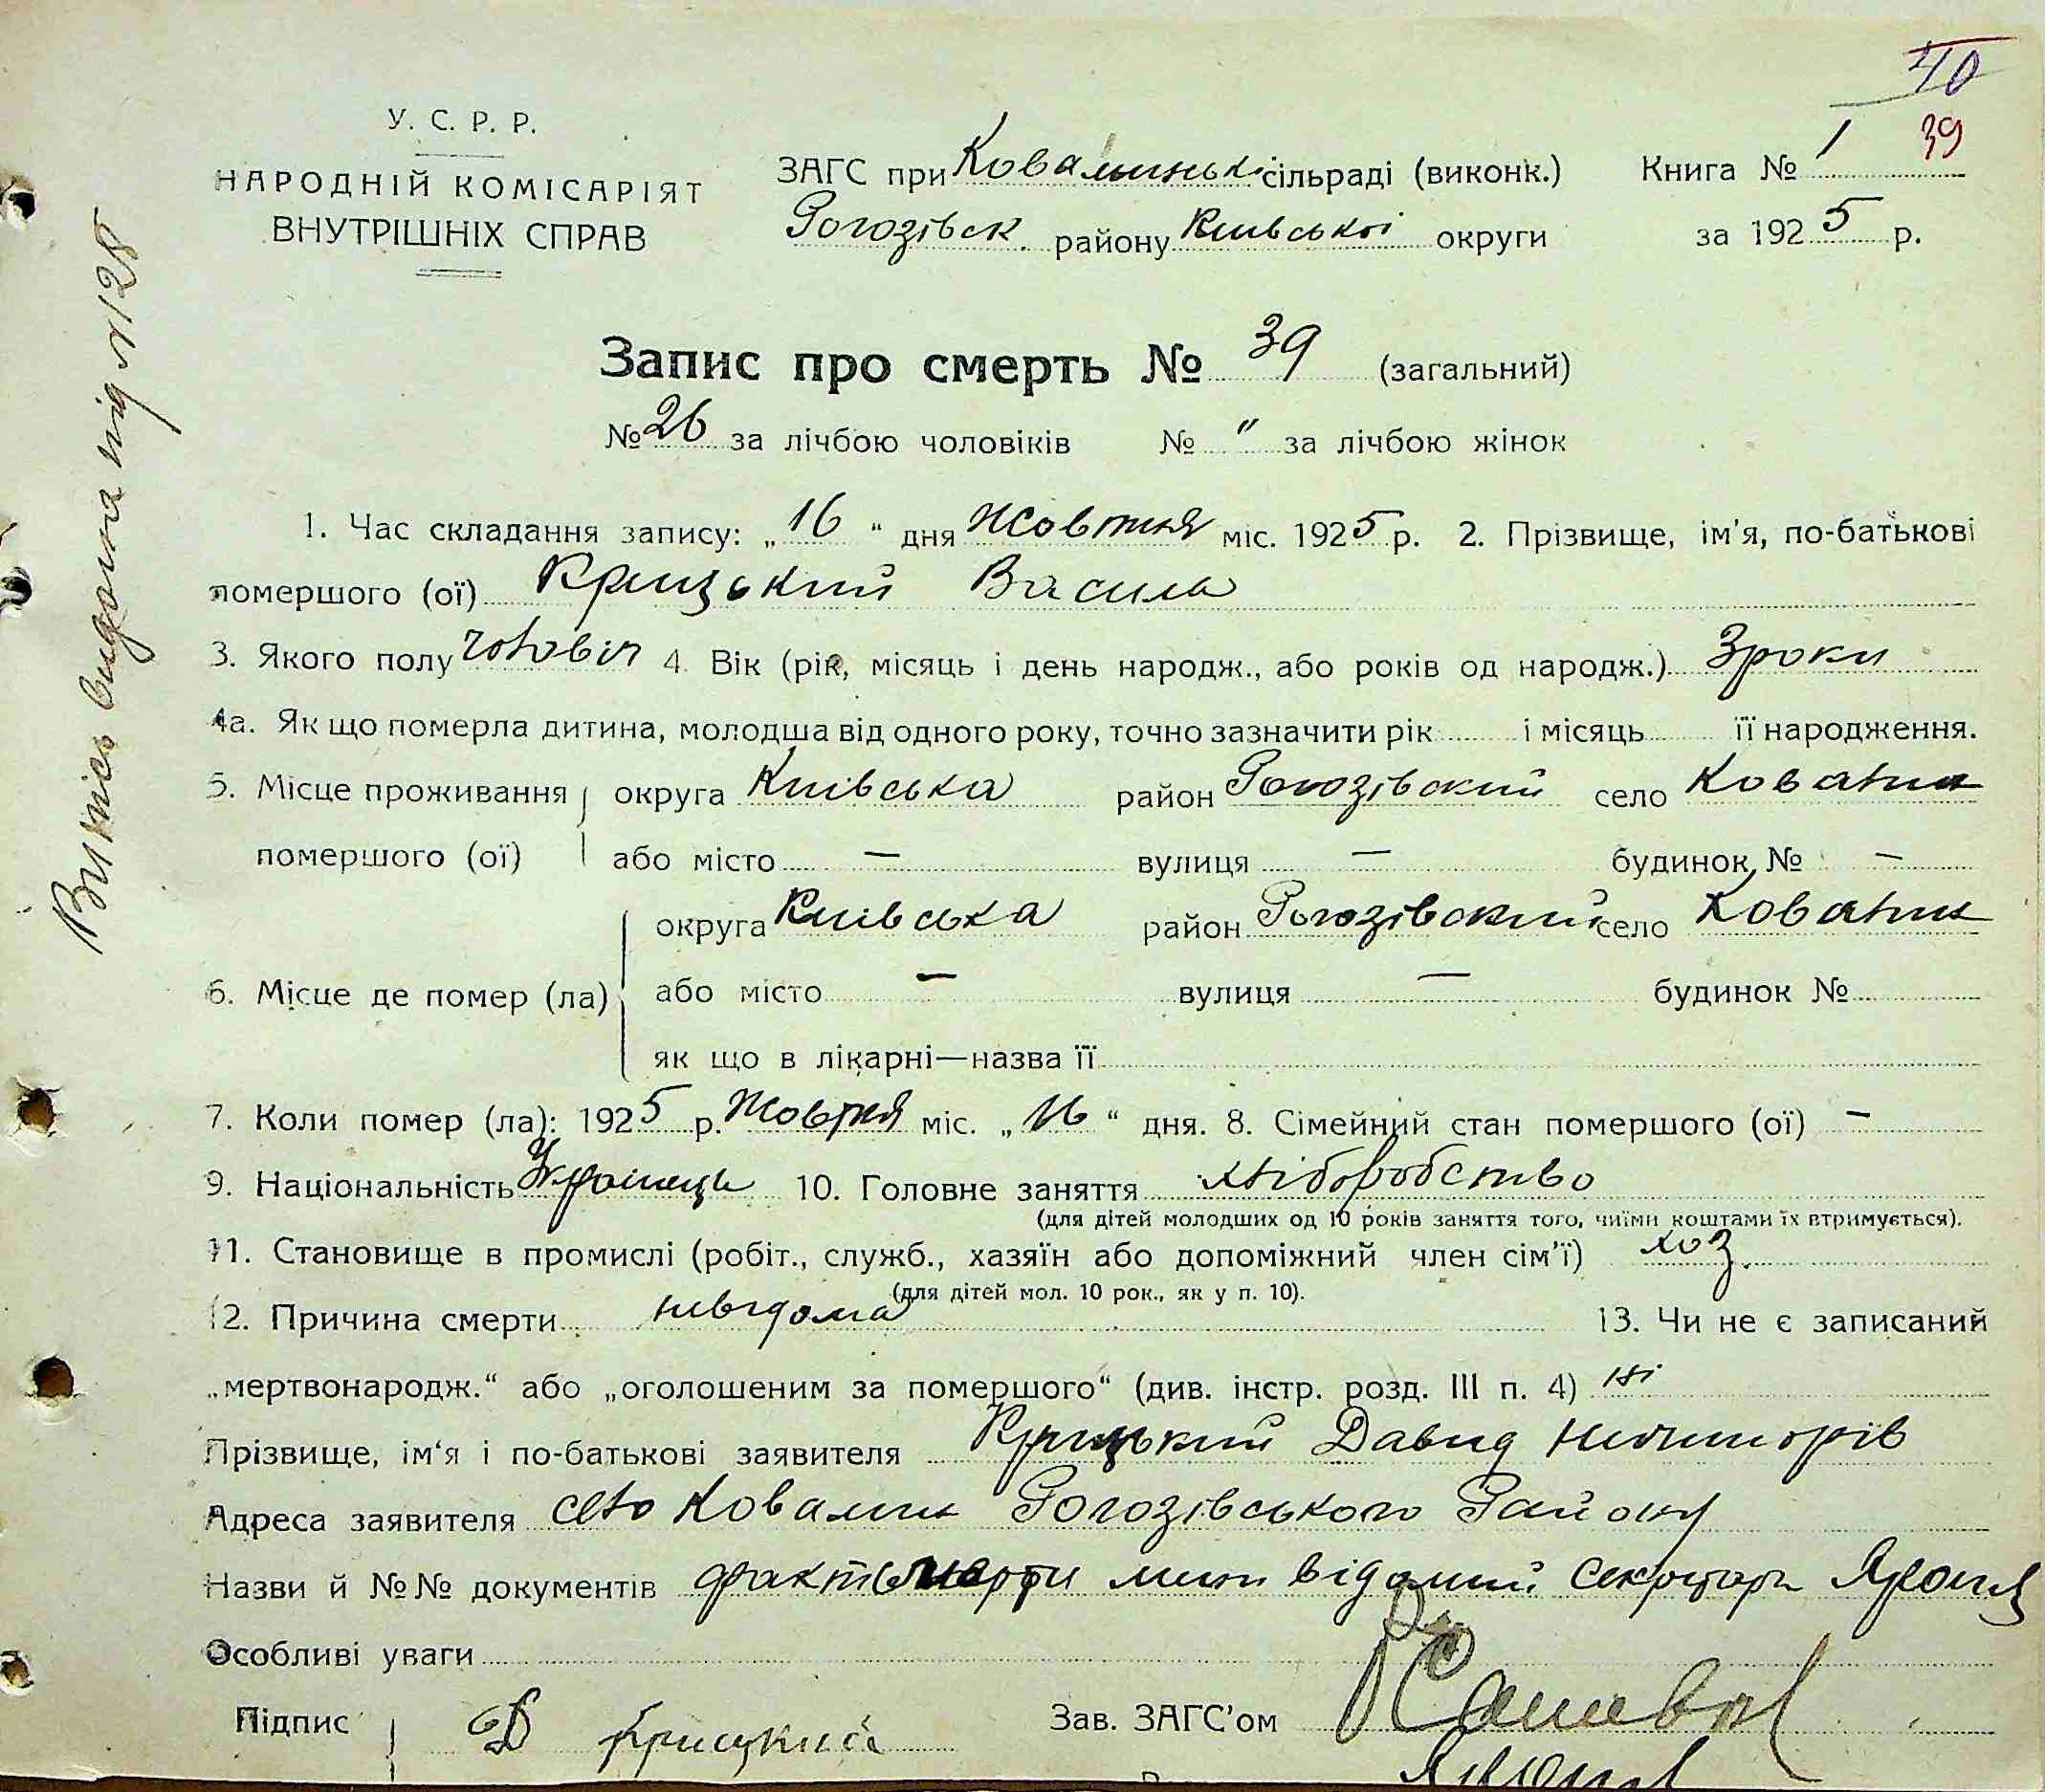 40
39
У. С. Р. Р.
НАРОДНІЙ КОМІСАРІЯТ
ВНУТРІШНІХ СПРАВ
ЗАГС при Ковалинські сільраді (виконк.) Книга № 1
Рогозівск. району Київської округи за 1925 р.
Випись видана під №128
Запис про смерть № 39 (загальний)
№ 26 за лічбою чоловіків № " за лічбою жінок
1. Час складання запису: „16“ дня Жовтня міс. 1925 р. 2. Прізвище, ім'я, по-батькові
помершого (ої) Крицький Василь
3. Якого полу чоловіч 4. Вік (рік, місяць і день народж., або років од народж.) 3 роки
4а. Як що померла дитина, молодша від одного року, точно зазначити рік і місяць її народження.
5. Місце проживання округа Київська район Рогозівский село Ковалин
помершого (ої) або місто — вулиця — будинок № —
округа Київська район Рогозівский село Ковалин
6. Місце де помер (ла) або місто — вулиця — будинок №
як що в лікарні—назва її
7. Коли помер (ла): 1925 р. Жовтня міс. „16“ дня. 8. Сімейний стан помершого (ої) —
9. Національність Украінець 10. Головне заняття хліборобство
(для дітей молодших од 10 років заняття того, чиїми коштами їх втримується).
11. Становище в промислі (робіт., служб., хазяїн або допоміжний член сім'ї) хоз.
(для дітей мол. 10 рок., як у п. 10).
12. Причина смерти невідома 13. Чи не є записаний
„мертвонародж.“ або „оголошеним за помершого“ (див. інстр. розд. III п. 4) ні
Прізвище, ім'я і по-батькові заявителя Крицький Давид Никипорів
Адреса заявителя село Ковалин Рогозівського Району
Назви й №№ документів факт смерти мині відомий секретарь
Особливі уваги
Підпис Крицкий Зав. ЗАГС'ом